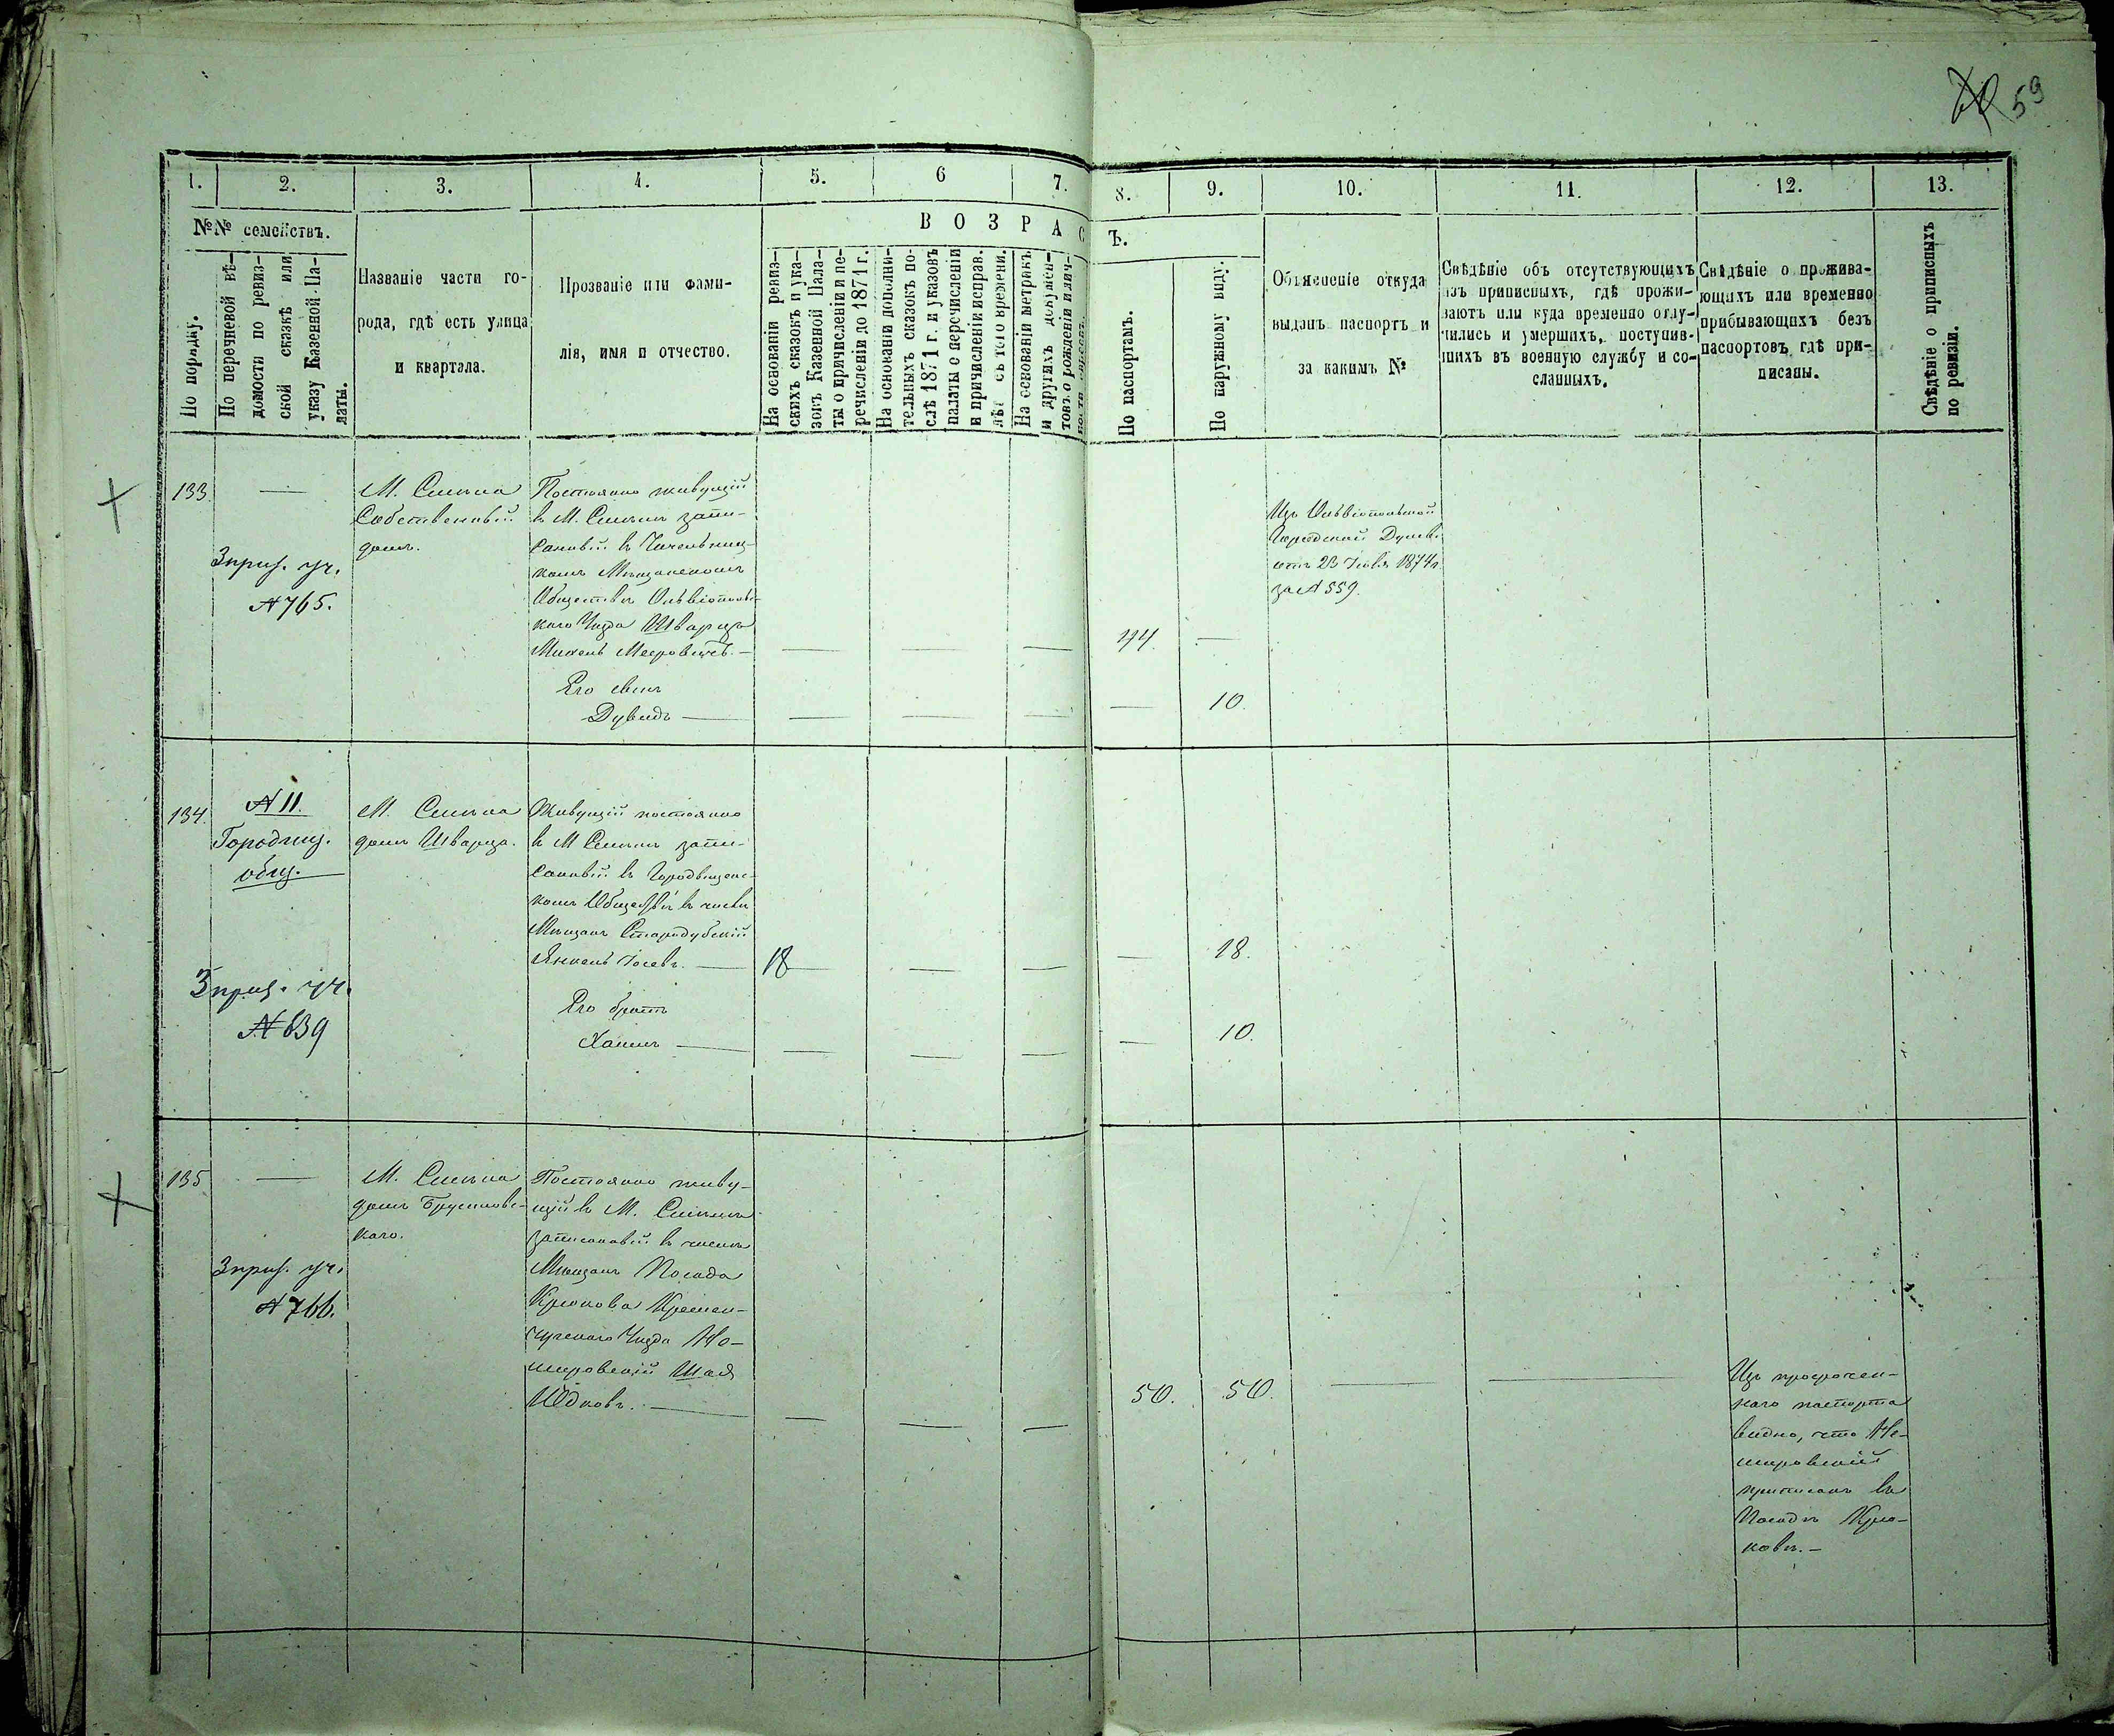 59
1. 2. 3. 4. 5. 6 7. 8. 9. 10. 11. 12. 13.
№№ семействъ.
По порядку.
По перечневой вѣ-
домости по ревиз-
ской сказкѣ или
указу Казенной Па-
латы.
Названіе части го-
рода, гдѣ есть улица
и квартала.
Прозваніе или фами-
лія, имя и отчество.
ВОЗРАС
Ъ.
На основаніи ревиз-
скихъ сказокъ и ука-
зокъ Казенной Пала-
ты о причисленіи и пе-
речисленіи до 1871 г.
На основаніи дополни-
тельныхъ сказокъ по-
слѣ 1871 г. и указовъ
палаты о перечисленіи
и причисленіи исправ.
лѣт съ того времени.
На основаніи метрикъ
и другихъ докумен-
товъ о рожденіи и лич-
По паспортамъ.
По наружному виду.
Объясненіе откуда
выданъ паспортъ и
за какимъ №
Свѣдѣніе объ отсутствующихъ
изъ приписныхъ, гдѣ прожи-
ваютъ или куда временно отлу-
чились и умершихъ, поступив-
шихъ въ военную службу и со-
сланныхъ.
Свѣдѣніе о прожива-
ющихъ или временно
прибывающихъ безъ
паспортовъ гдѣ при-
писаны.
Свѣдѣніе о приписныхъ
по ревизіи.
133
—
3 приз. уч.
№ 765.
М. Смѣла
Собственовій
домъ.
Постоянно живущій
въ М. Смѣлѣ запи-
сановій въ
комъ Мѣщанскомъ
Обществѣ Ольвіополь-
каго Уѣзда Шварцъ
Михель Мееровичъ. —
Его сынъ
Дувидъ —
44. —
— 10.
Изъ Ольвіопольской
Городской Думы
отъ 23 1874 г.
за № 559.
134.
№ 11.
Городищ.
общ.
3 приз. уч.
№ 839
М. Смѣла
домъ Шварца.
Живущій постоянно
въ М Смѣлѣ запи-
сановій въ Городищенс-
комъ Обществѣ въ числѣ
Мѣщанъ Стародубскій
Янкель Іосевъ. —
18
— 18.
Его братъ
Хаимъ —
— 10.
135
—
3 приз. уч.
№ 766.
М. Смѣла
домъ Брусиловс-
каго.
Постоянно живу-
щій въ М. Смѣлѣ
записановій въ числѣ
Мѣщанъ Посада
Крюкова Кремен-
чугскаго Уѣзда Не-
мировскій Шая
Юдковъ. —
50. 50.
Изъ просрочен-
наго паспорта
видно, что Не-
мировскій
приписанъ въ
Посадѣ Крю-
ковѣ. —